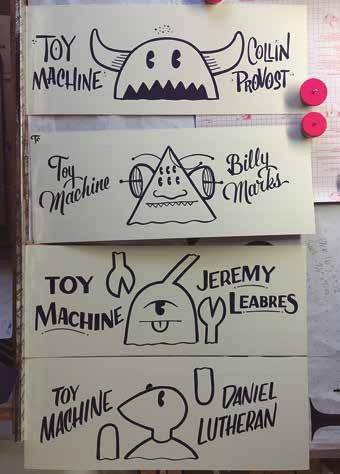 TOY
MACHINE
COLLIN
PROVOST
To
Toy
Machine
Billy
Marks
TOY
MACHINE
JEREMY
LEABRES
TOY
MACHINE
DANIEL
LUTHERAN